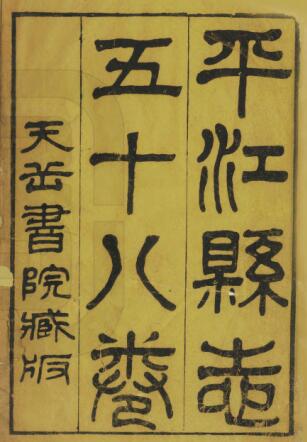 平江縣志
五十八卷
天岳書院藏版